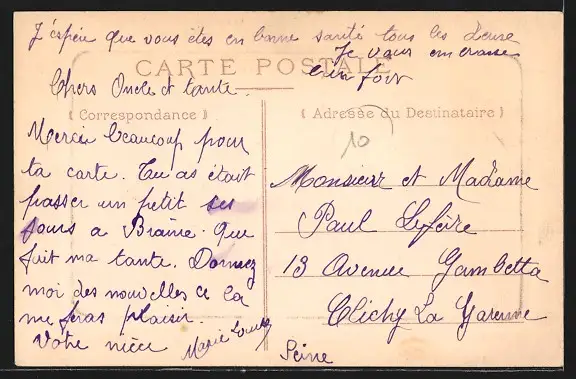 J'éspére que vous êtes en bonne santé tous les deux
Je vous embrasse
bien fort
CARTE POSTALE
Chers Oncle et tante.
( Correspondance )
Merci beaucoup pour
ta carte. Tu as était
passer un petit
jours a Braine. que
fuit ma tante. Donnez
moi des nouvelles ce la
me feras plaisir.
Votre nièce Marie Louise
( Adresse du Destinataire )
10
Monsieur et Madame
Paul Lefèvre
13 Avenue Gambetta
Clichy La Garenne
Seine